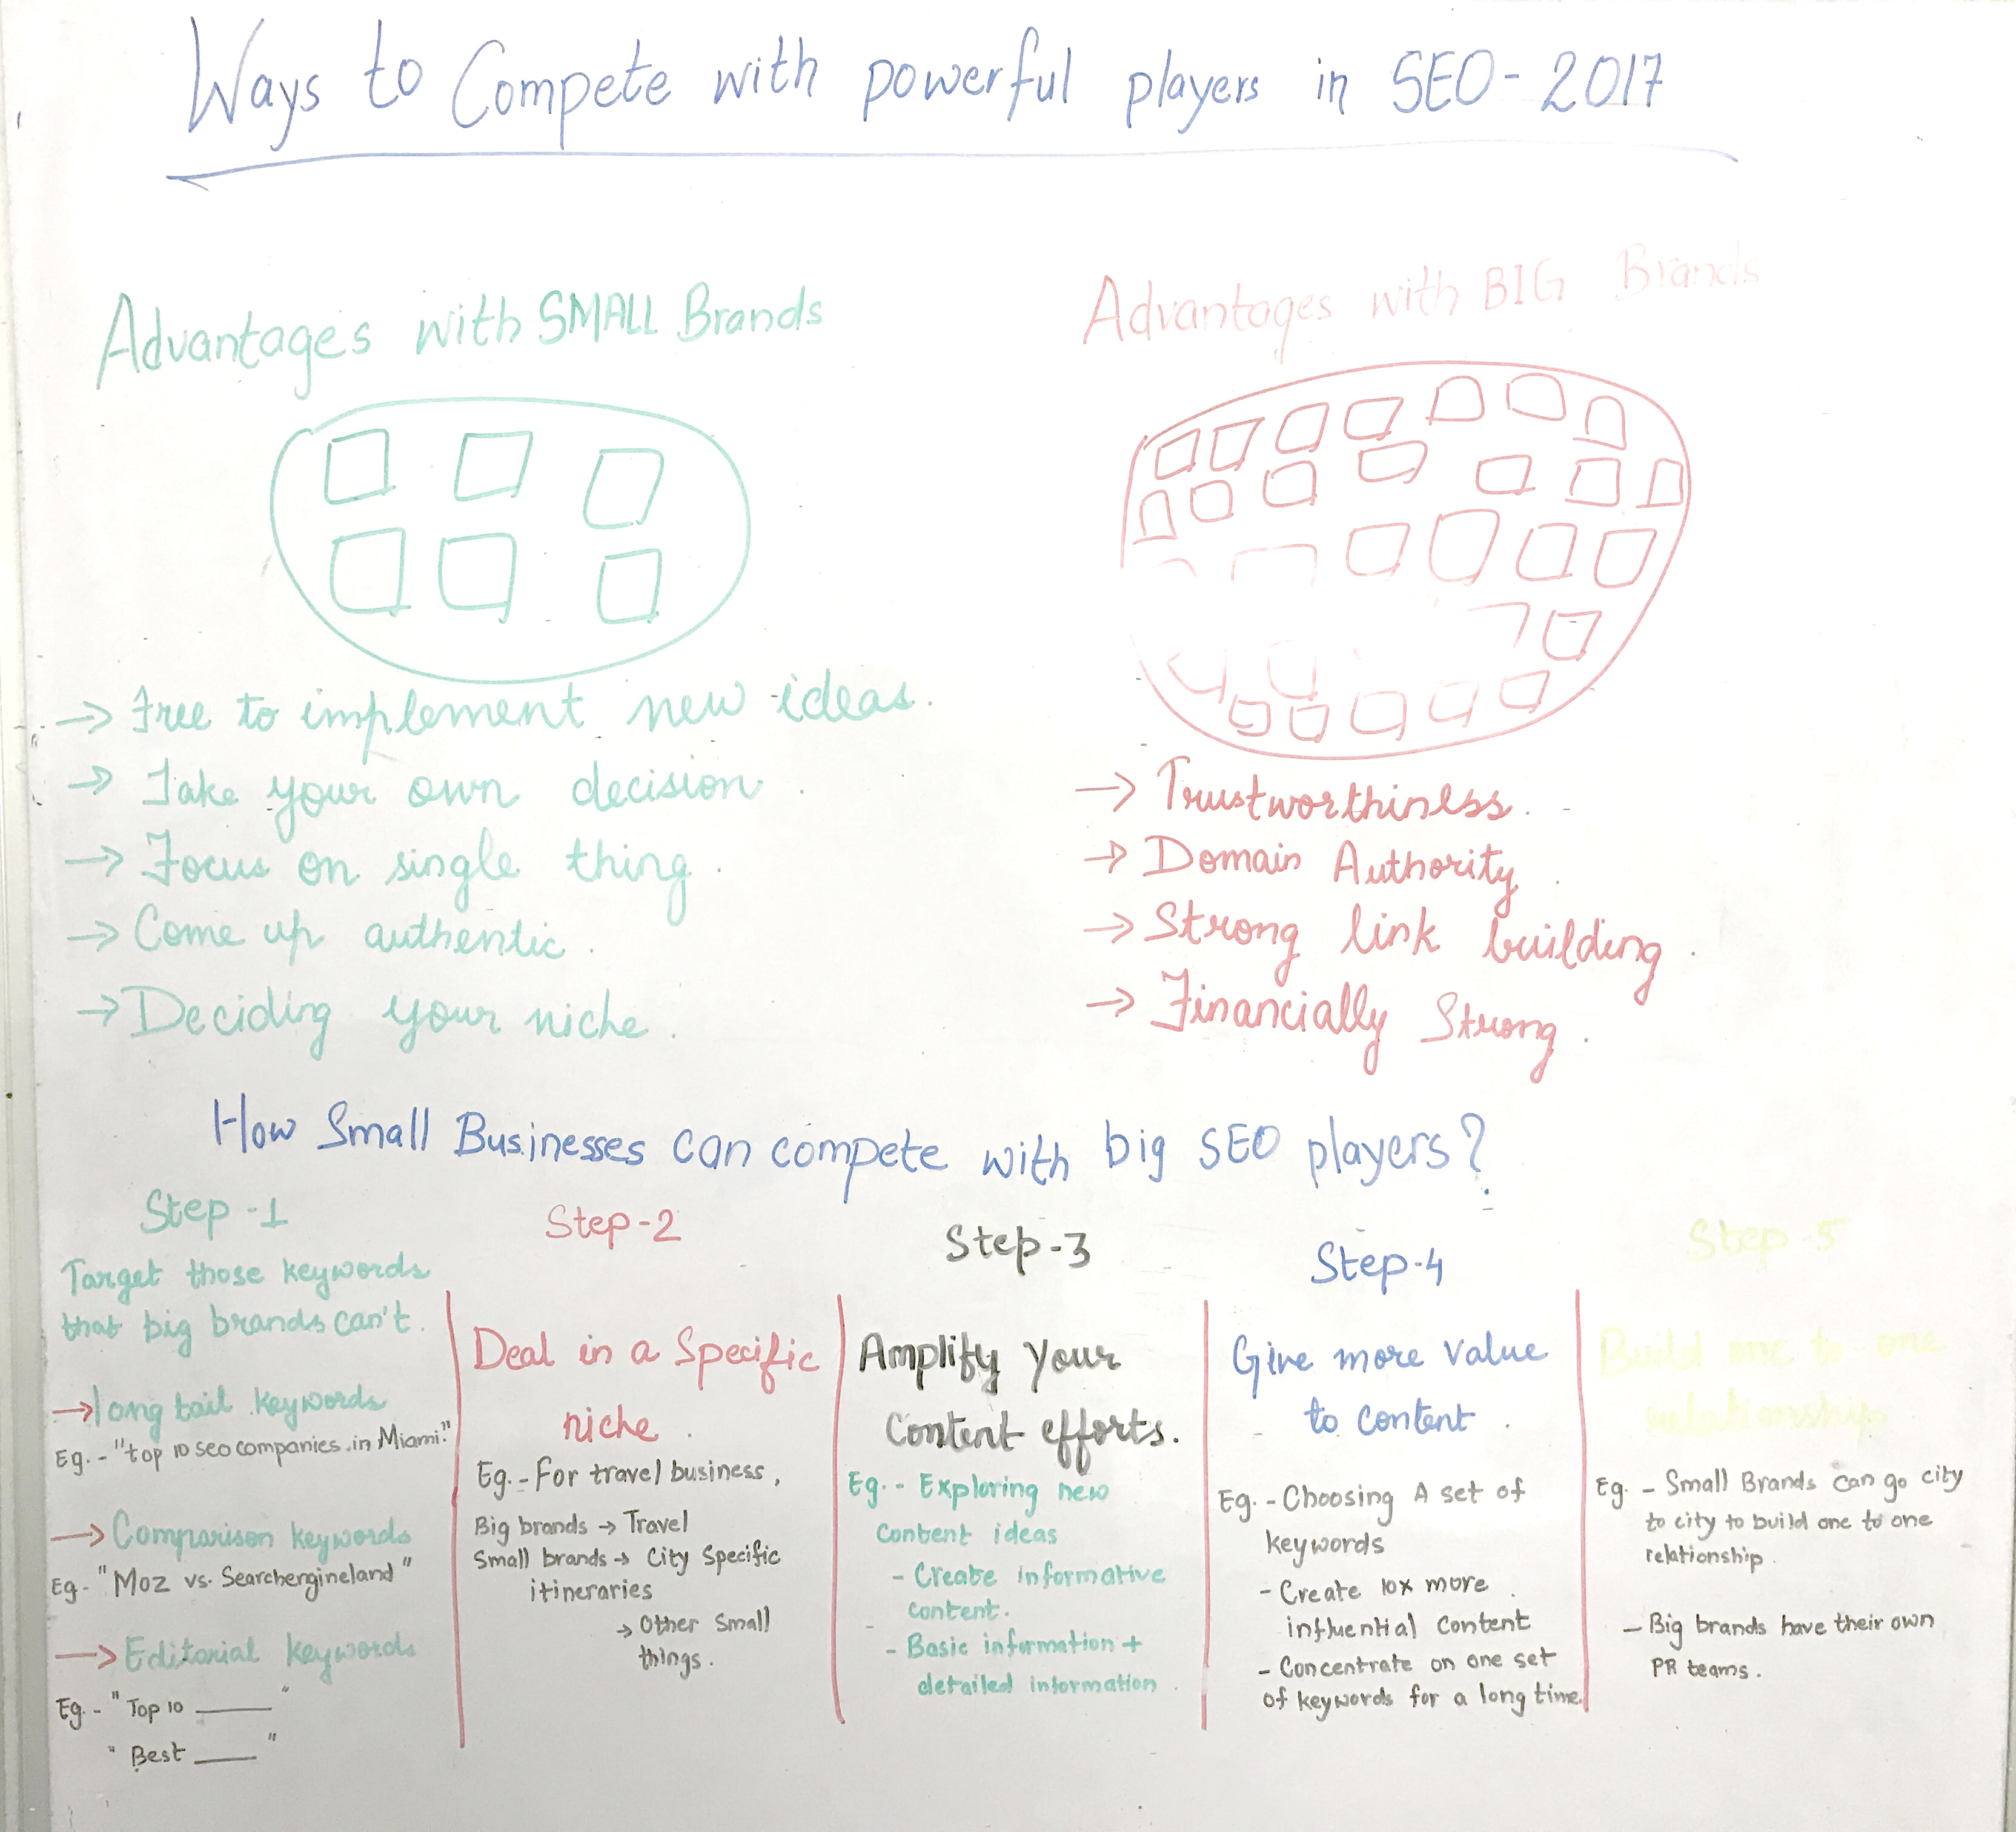 Ways to Compete with powerful players in SEO - 2017
Advantages with SMALL Brands
→ Free to implement new ideas.
→ Take your own decision.
→ Focus on single thing.
→ Come up authentic.
→ Deciding your niche.
Advantages with BIG Brands
→ Trustworthiness.
→ Domain Authority.
→ Strong link building.
→ Financially Strong.
How Small Businesses can compete with big SEO players?
Step -1
Target those keywords
that big brands can't.
→ long tail keywords
Eg. - "top 10 seo companies in Miami."
→ Comparison keywords
Eg - "Moz vs. Searchengineland"
→ Editorial keywords
Eg. - "Top 10 ______"
"Best ____"
Step-2
Deal in a Specific
niche.
Eg. - For travel business,
Big brands → Travel
Small brands → City Specific
itineraries
→ Other Small
things.
Step-3
Amplify Your
Content efforts.
Eg. - Exploring new
content ideas
- Create informative
content.
- Basic information +
detailed information.
Step-4
Give more value
to content.
Eg. - Choosing A set of
keywords
- Create 10x more
influential content
- Concentrate on one set
of keywords for a long time.
Step -5
Build one to one
relationship
Eg. - Small Brands can go city
to city to build one to one
relationship.
- Big brands have their own
PR teams.